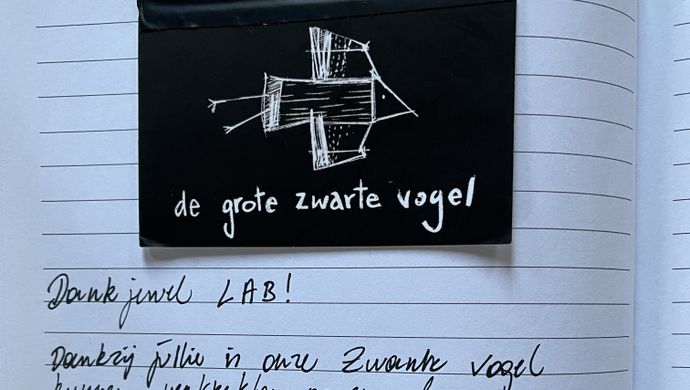 de grote zwarte vogel
Dankjewel LAB!
Dankzij jullie is onze Zwarte Vogel
kunnen